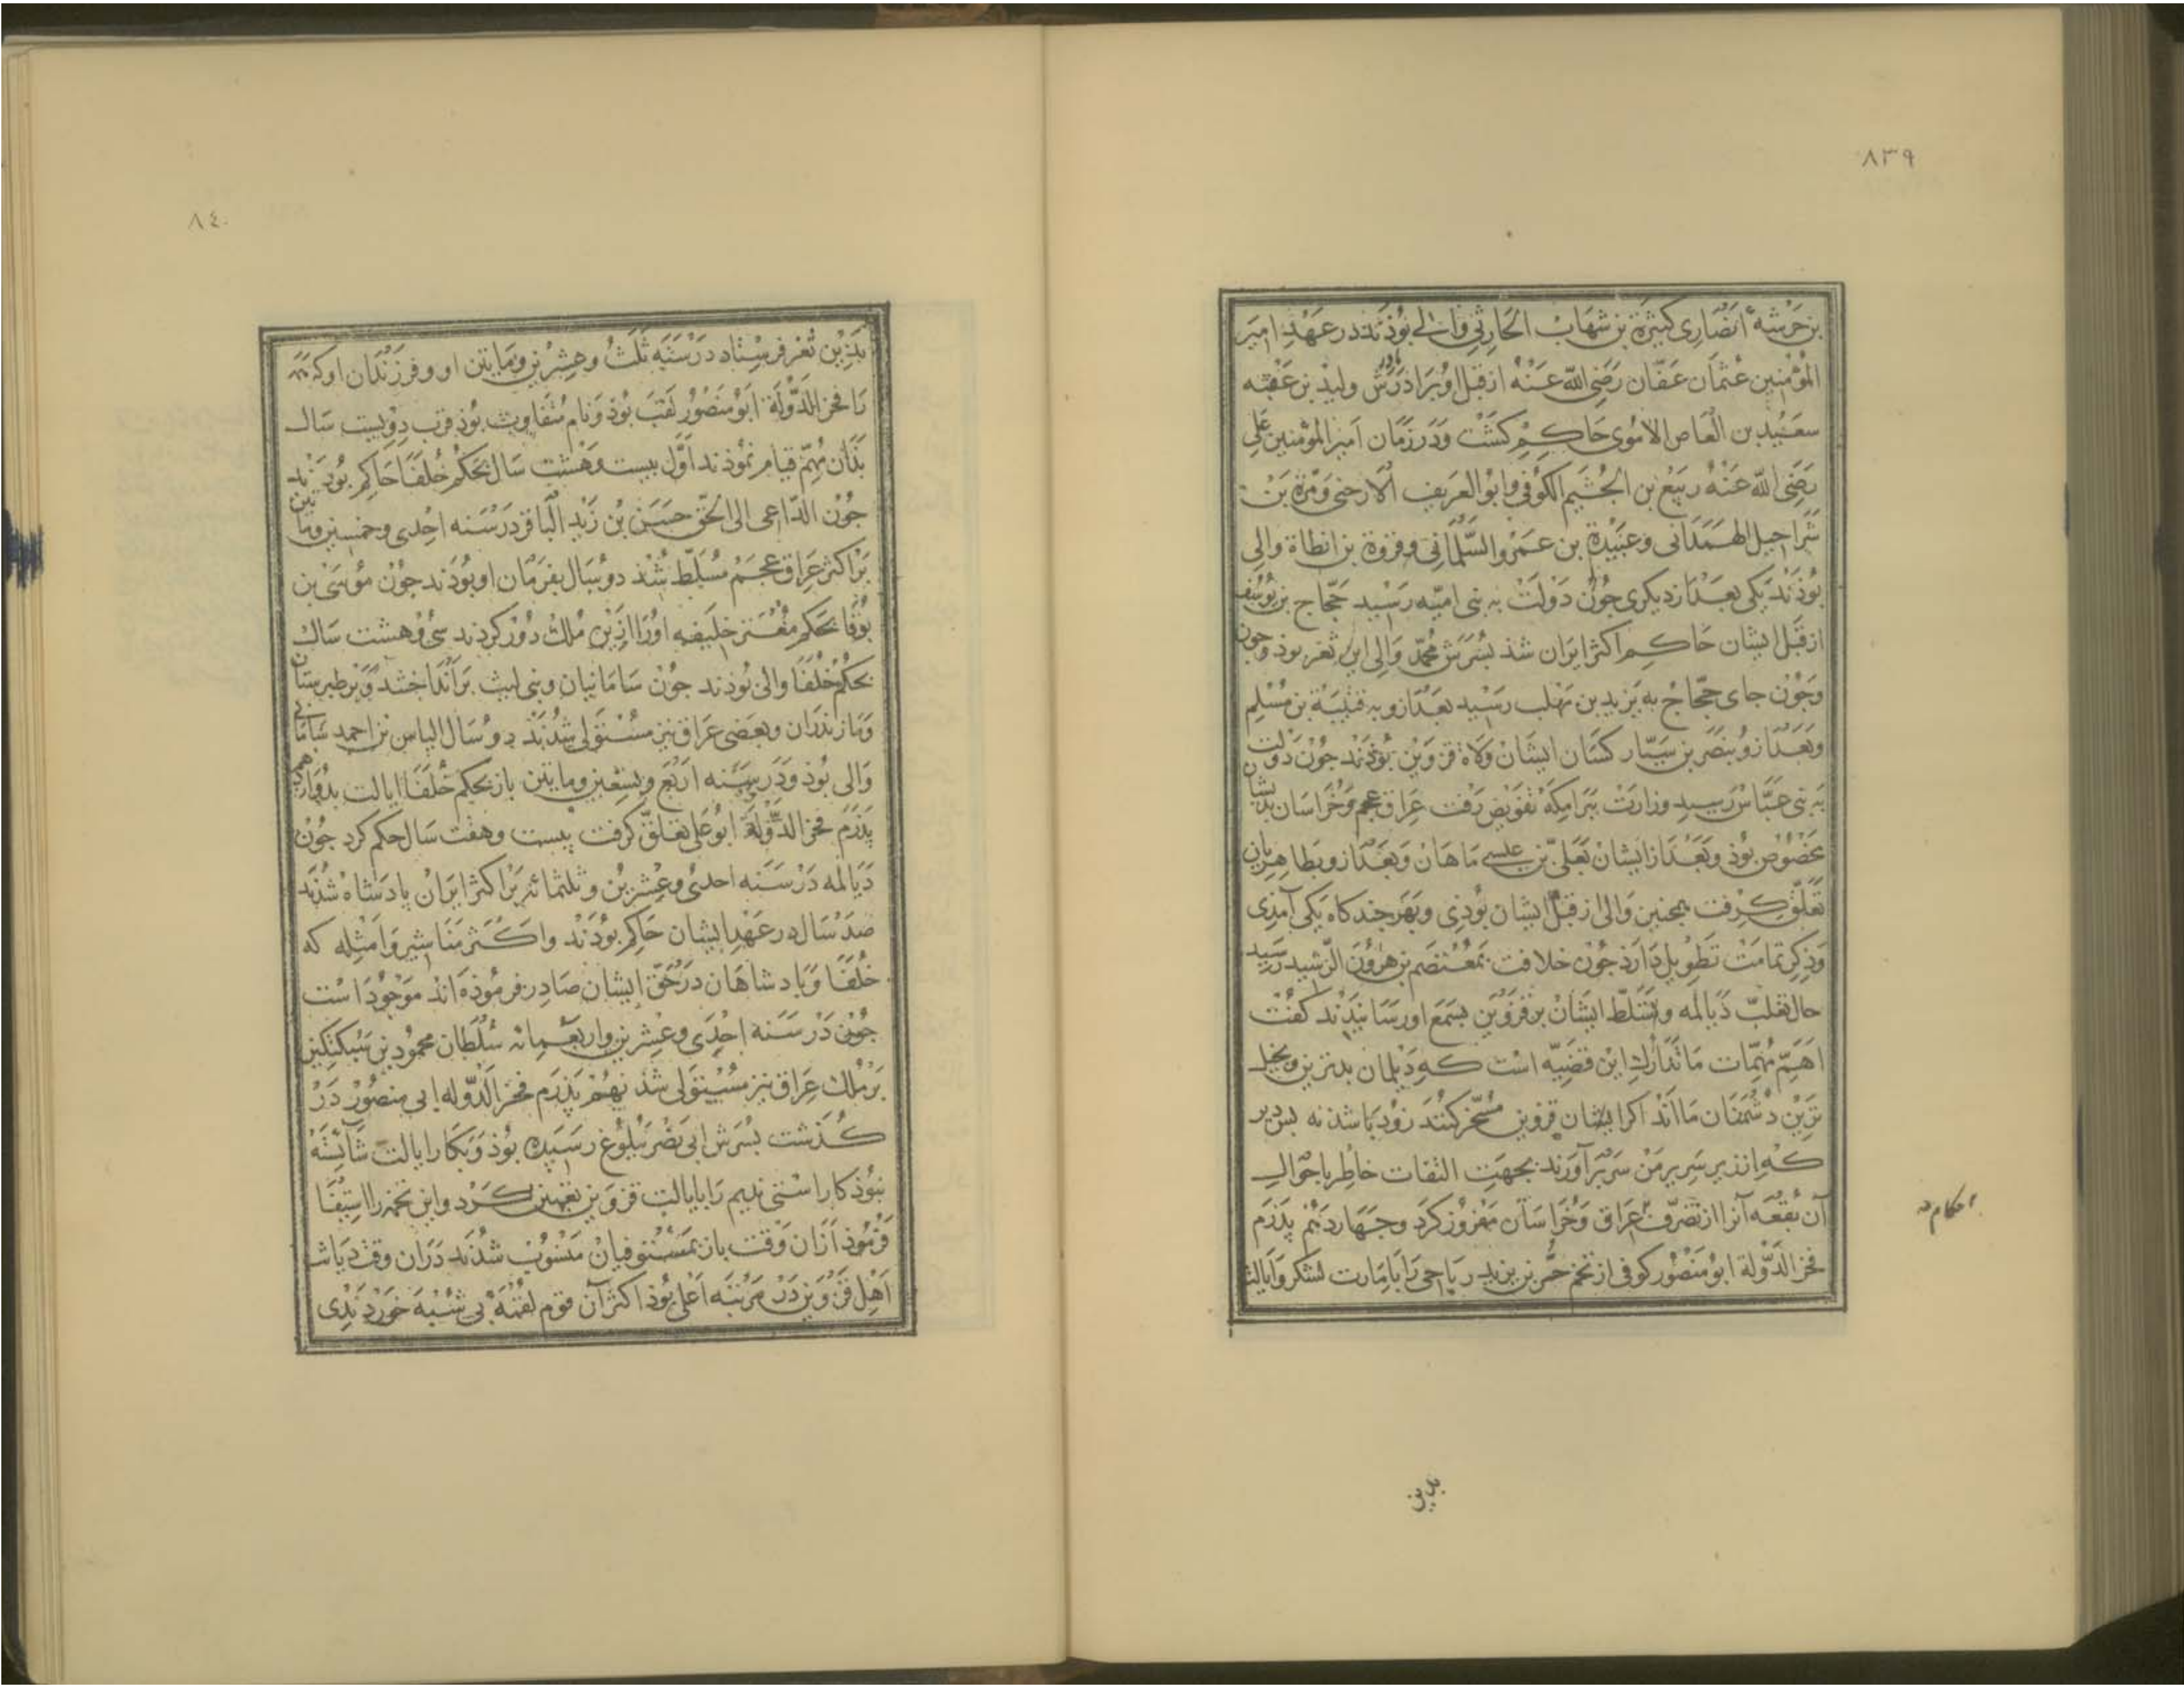 ٨٣٩
بن خرشه انصاری کثیرة بن شهاب الحارثی والی بوذند در عهد امیر
المؤمنین عثمان عفان رضی الله عنه از قبل او برادر مادرش ولید بن عقبه
سعید بن العاص الاموی حاکم کشت ودر زمان امیر المؤمنین علی
رضی الله عنه ربیع بن الخثیم الکوفی وابو العریف الارحبی ومرة بن
شراحیل الهمدانی وعبیدة بن عمرو السلمانی وقروة بن انطاة والی
بوذند یکی بعد از دیکری جون دولت به بنی امیه رسید حجاج بن یوسف
از قبل ایشان حاکم اکثر ایران شذ بسرش محمد والی این ثغر بوذ وجون
وجون جای حجاج به یزید بن مهلب رسید بعد از و به قتیبة بن مسلم
وبعد از و بنصر بن سیار کسان ایشان ولاة قزوین بوذند جون دولت
به بنی عباس رسید وزارت ببرامکه تفویض رفت عراق عجم وخراسان بدیشان
مخصوص بوذ وبعد از ایشان بعلی بن عیسی ماهان وبعد از و بطاهریان
تعلق کرفت همجنین والی از قبل ایشان بوذی وبهر جند کاه یکی آمذی
وذکر تمامت تطویل دارذ جون خلافت بمعتصم بن هرون الرشید رسید
حال تغلب دیالمه وتسلط ایشان بر قزوین بسمع او رسانیدند کفت
اهم مهمات ما تدارک این قضیه است که دیلمان بدترین وبخیل
ترین دشمنان ما اند اکر ایشان قزوین مسخر کنند زود باشد نه بس دیر
که از زیر سریر من سر بر آورند بجهت التفات خاطر باحوال
آن بقعه آنرا از تصرف عراق وخراسان مفروز کرد وجهاردهم پدرم
فخر الدولة ابو منصور کوفی از تخم حر بن یزید ریاحی را بامارت لشکر وایالت
احکام
بدین
٨٤٠
بدین ثغر فرستاد در سنه ثلث وعشرین ومایتین او وفرزندان او که همه
را فخر الدولة ابو منصور لقب بوذ ونام متفاوت بوذ قرب دویست سال
بذان مهم قیام نموذند اول بیست وهشت سال بحکم خلفا حاکم بوذند
جون الداعی الی الحق حسن بن زید الباقر در سنه احدی وخمسین ومایتین
بر اکثر عراق عجم مسلط شذ دو سال بفرمان او بوذند جون موسی بن
بوقا بحکم معتز خلیفه او را از این ملک دور کردند سی وهشت سال
بحکم خلفا والی بوذند جون سامانیان وبنی لیث بر آنداختند وبر طبرستان
ومازندران وبعضی عراق نیز مستولی شدند دو سال الیاس بن احمد سامانی
والی بوذ ودر سنه اربع وتسعین ومایتین باز بحکم خلفا ایالت بدوازدهم
پدرم فخر الدولة ابو علی تعلق کرفت بیست وهفت سال حکم کرد جون
دیالمه در سنه احدی وعشرین وثلثمائه بر اکثر ایران پادشاه شدند
صد سال در عهد ایشان حاکم بوذند واکثر مناشیر وامثله که
خلفا وپادشاهان در حق ایشان صادر فرموذه اند موجود است
جون در سنه احدی وعشرین واربعمائه سلطان محمود بن سبکتکین
بر ملک عراق نیز مستولی شذ نهم پدرم فخر الدوله ابی منصور در
کذشت بسرش ابی نصر ببلوغ رسیده بوذ وبکار ایالت شایسته
نبوذ کار استی ندیم را بایالت قزوین تعیین کرد واین تخمه را استیفا
فرموذ از آن وقت باز بمستوفیان منسوب شدند در آن وقت دیانت
اهل قزوین در مرتبه اعلی بوذ اکثر آن قوم لقمه بی شبهه خوردندی